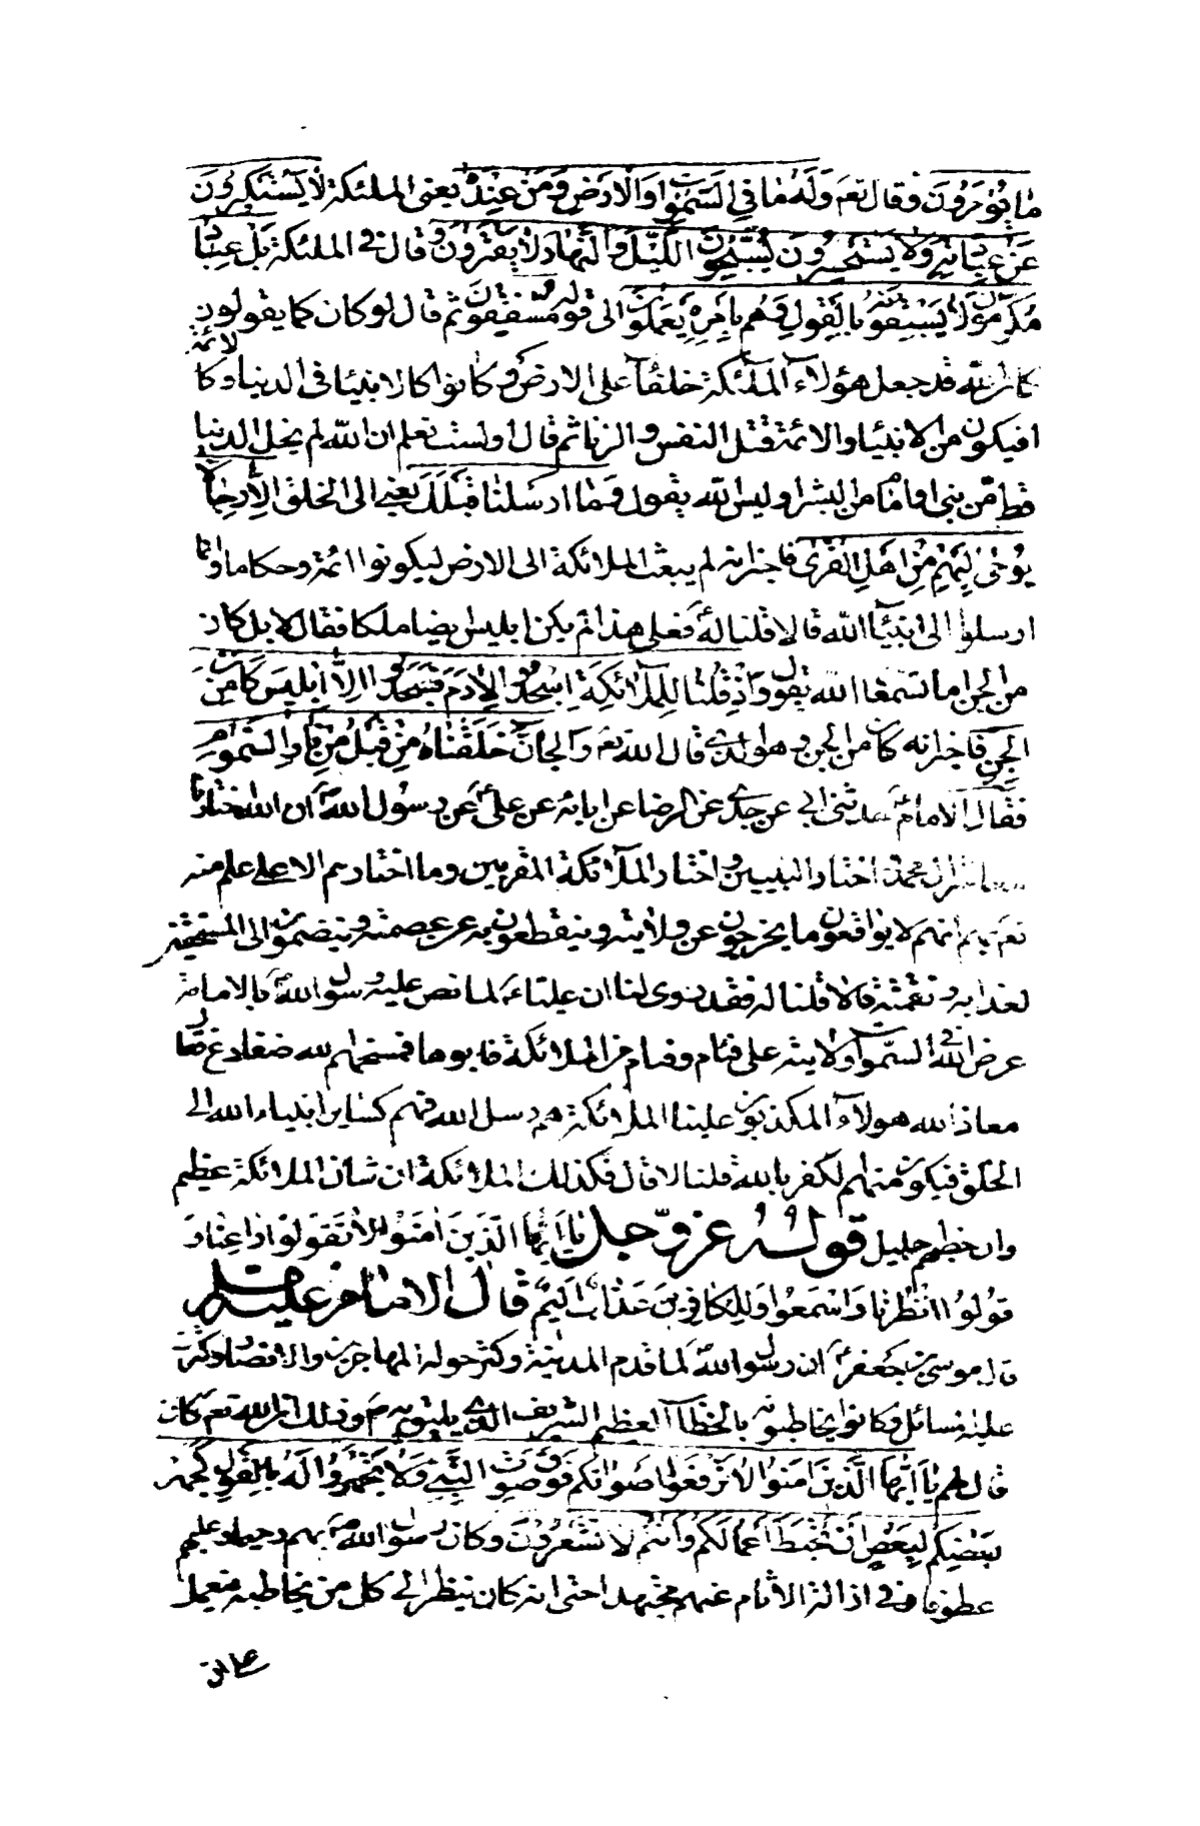 ما يؤمرون وقال تعَ وَلَهُ مَا فِي السَّمٰوَاتِ وَالْاَرْضِ وَمَنْ عِنْدَهُ يعنى الملئكة لَا يَسْتَكْبِرُونَ
عَنْ عِبَادَتِهِ وَلَا يَسْتَحْسِرُونَ يُسَبِّحُونَ اللَّيْلَ وَالنَّهَارَ لَا يَفْتُرُونَ وقال فى الملئكة بَلْ عِبَادٌ
مُكْرَمُونَ لَا يَسْبِقُونَهُ بِالْقَوْلِ وَهُمْ بِاَمْرِهِ يَعْمَلُونَ الى قوله مُشْفِقُونَ ثم قال لو كان كما يقولون
كان الله قد جعل هؤلاء الملائكة خلفاء على الارض وكانوا كالانبياء فى الدنيا وكالائمة
افيكون من الانبياء والائمة قتل النفس والزنا ثم قال اولست تعلم ان الله لم يخل الدنيا
قط من نبى او امام من البشر اوليس الله يقول وَمَا اَرْسَلْنَا قَبْلَكَ يعنى الى الخلق اِلَّا رِجَالًا
يُوحٰى اِلَيْهِمْ مِنْ اَهْلِ الْقُرٰى فاخبر انه لم يبعث الملائكة الى الارض ليكونوا ائمة وحكاما وانما
ارسلوا الى انبياء الله قالا قلنا له فعلى هذا لم يكن ابليس ايضا ملكا فقال لا بل كان
من الجن اما تسمعا الله يقول وَاِذْ قُلْنَا لِلْمَلَائِكَةِ اسْجُدُوا لِاٰدَمَ فَسَجَدُوا اِلَّا اِبْلِيسَ كَانَ مِنَ
الْجِنِّ فاخبر انه كان من الجن وهو الذى قال الله تعَ وَالْجَانَّ خَلَقْنَاهُ مِنْ قَبْلُ مِنْ نَارِ السَّمُومِ
فقال الامام حدثنى ابى عن جدى عن الرضا عن ابائه عن على عن رسول الله ان الله اختارنا
معاشر ال محمد اختار النبيين واختار الملائكة المقربين وما اختارهم الا على علم منه
تعَ بهم انهم لا يواقعون ما يخرجون عن ولايته وينقطعون به عن عصمته وينضمون الى المستحقين
لعذابه ونقمته قالا قلنا له فقد روى لنا ان عليا لما نص عليه رسول الله بالامامة
عرض الله فى السموات ولايته على فئام وفئام من الملائكة فابوها فمسخهم الله ضفادع فقال
معاذ الله هؤلاء المكذبون علينا الملائكة هم رسل الله فهم كساير انبياء الله الى
الخلق فيكون منهم الكفر بالله قلنا لا قال فكذلك الملائكة ان شان الملائكة عظيم
وان خطبهم جليل قوله عزوجل يَا اَيُّهَا الَّذِينَ اٰمَنُوا لَا تَقُولُوا رَاعِنَا وَ
قُولُوا انْظُرْنَا وَاسْمَعُوا وَلِلْكَافِرِينَ عَذَابٌ اَلِيمٌ قال الامام عليه السلام
قال موسى بن جعفر ان رسول الله لما قدم المدينة وكثر حوله المهاجرين والانصار وكثرت
عليه مسائل وكانوا يخاطبونه بالخطاب العظيم الشريف الذى يليق به ص وذلك ان الله تعَ كان
قال لهم يَا اَيُّهَا الَّذِينَ اٰمَنُوا لَا تَرْفَعُوا اَصْوَاتَكُمْ فَوْقَ صَوْتِ النَّبِيِّ وَلَا تَجْهَرُوا لَهُ بِالْقَوْلِ كَجَهْرِ
بَعْضِكُمْ لِبَعْضٍ اَنْ تَحْبَطَ اَعْمَالُكُمْ وَاَنْتُمْ لَا تَشْعُرُونَ وكان رسول الله بهم رحيما وعليهم
عطوفا وفى ازالة الاثام عنهم مجتهدا حتى انه كان ينظر الى كل من يخاطبه فيعمل
على ان